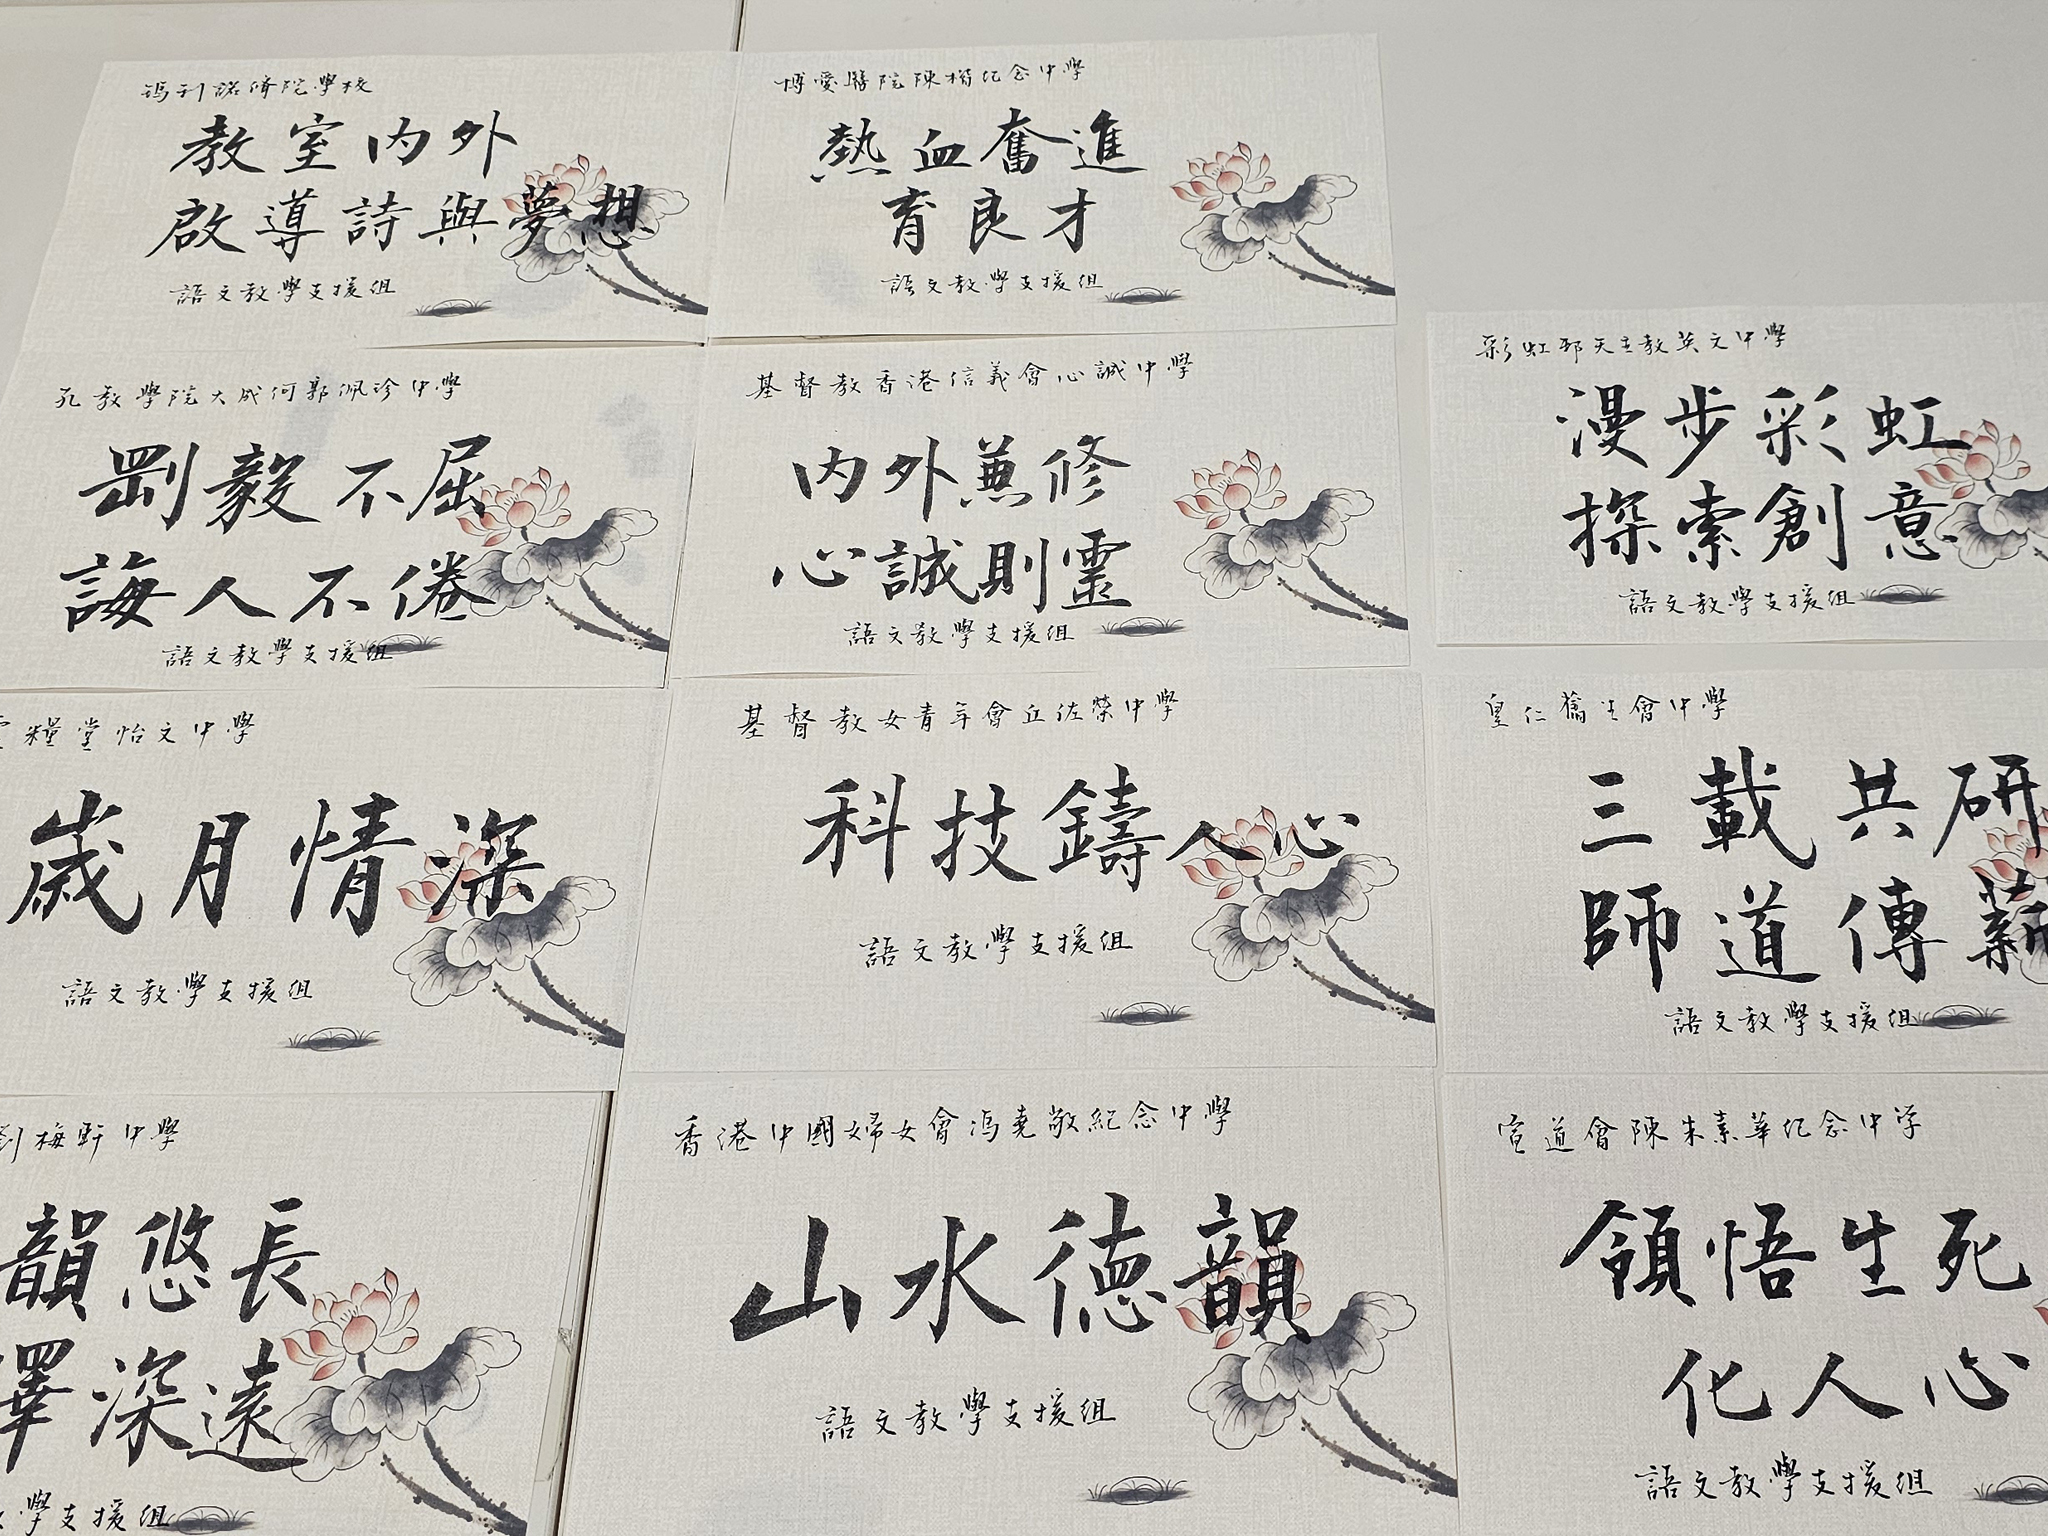 瑪利諾修院學校
教室內外
啟導詩與夢想
語文教學支援組
博愛醫院陳楷紀念中學
熱血奮進
育良才
語文教學支援組
孔教學院大成何郭佩珍中學
剛毅不屈
誨人不倦
語文教學支援組
基督教香港信義會心誠中學
內外兼修
心誠則靈
語文教學支援組
彩虹邨天主教英文中學
漫步彩虹
探索創意
語文教學支援組
靈糧堂怡文中學
歲月情深
語文教學支援組
基督教女青年會丘佐榮中學
科技鑄人心
語文教學支援組
皇仁舊生會中學
三載共研
師道傳薪
語文教學支援組
劉梅軒中學
韻悠長
澤深遠
學支援組
香港中國婦女會馮堯敬紀念中學
山水德韻
語文教學支援組
宣道會陳朱素華紀念中学
領悟生死
化人心
語文教學支援組